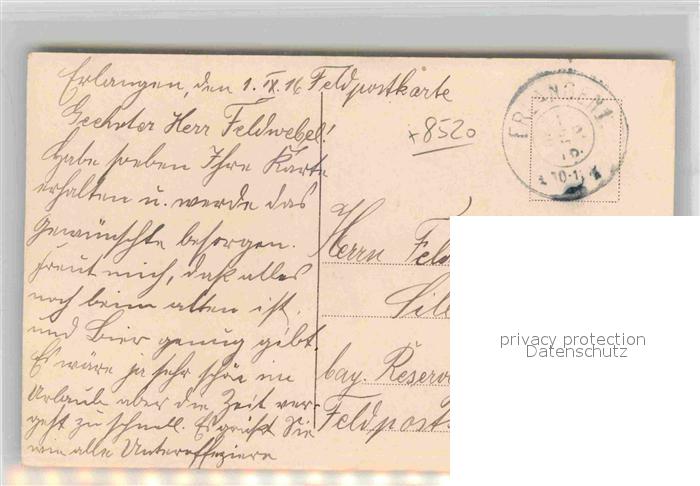 Erlangen, den 1. IX. 16 Feldpostkarte
Geehrter Herr Feldwebel!
Habe soeben Ihre Karte
erhalten u. werde das
Gewünschte besorgen.
Freut mich, daß alles
noch beim alten ist,
und Bier genug gibt.
Es wäre ja sehr schön im
Urlaub aber die Zeit ver-
geht zu schnell. Es grüßt Sie
wie alle Unteroffiziere
+8520
ERLANGEN 1.
Herrn Feld
bay. Reserve
Feldpost
privacy protection
Datenschutz